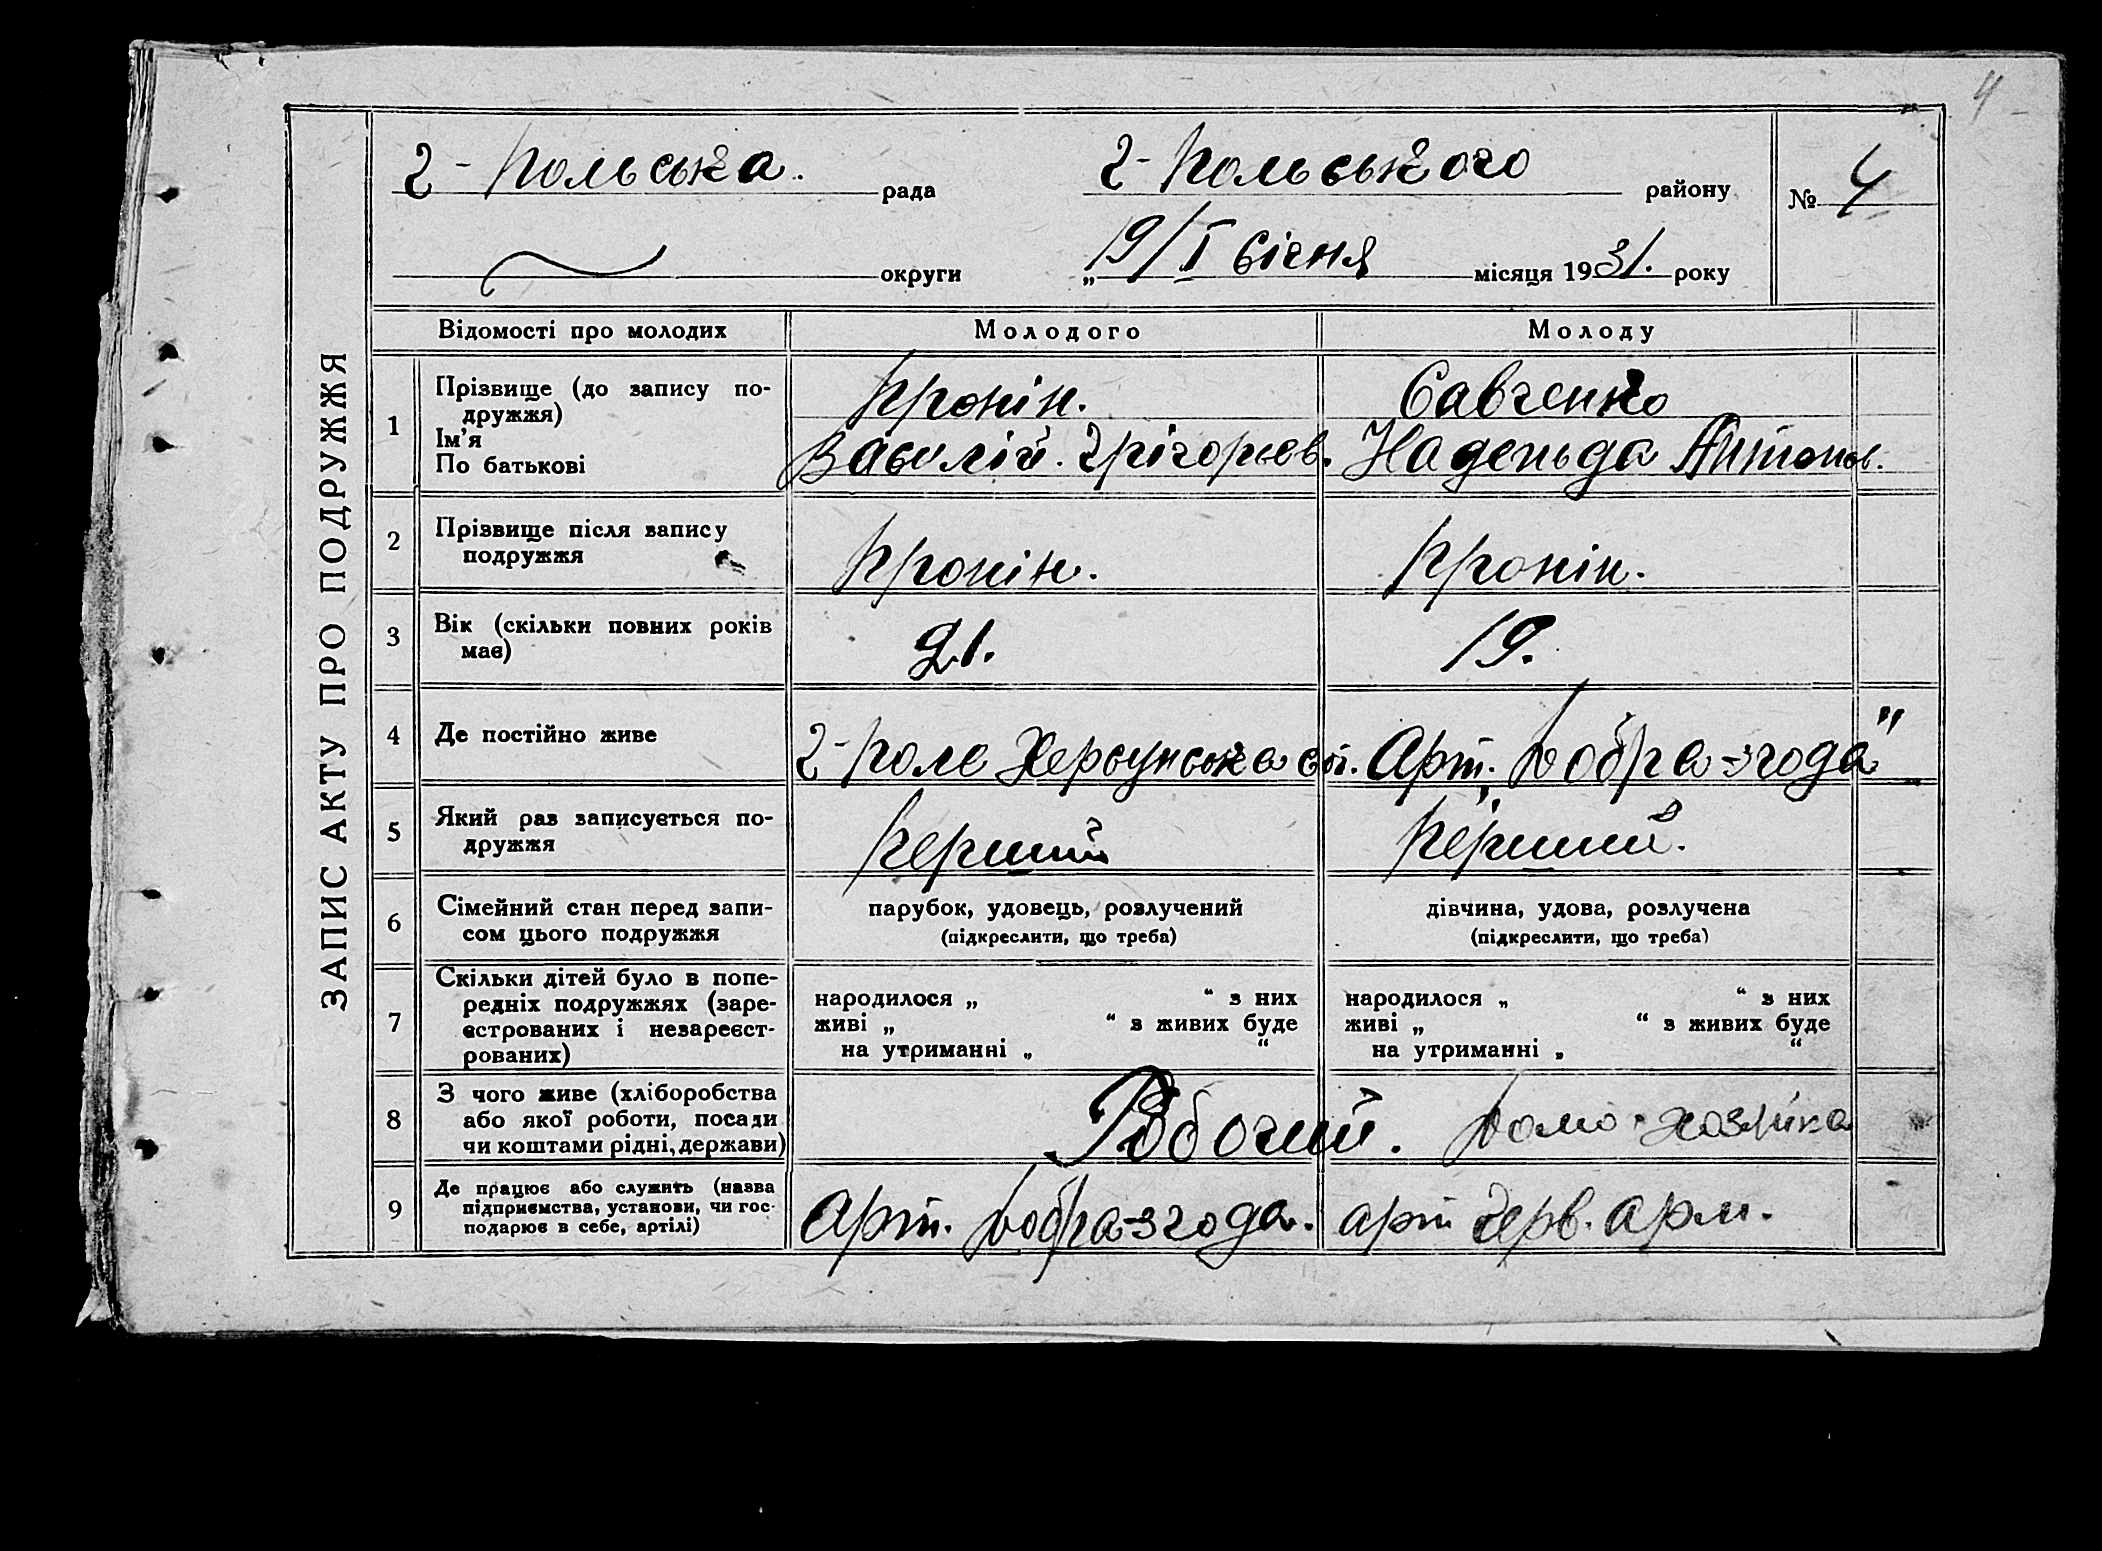 4
ЗАПИС АКТУ ПРО ПОДРУЖЖЯ
Г-Польська. рада
Г-Польського району
№ 4
округи
„19/I Січня місяця 1931. року
Відомості про молодих
Молодого
Молоду
1
Прізвище (до запису по-
дружжя)
Ім'я
По батькові
Пронін.
Василій. Грігорьев.
Савченко
Надежда Антонов.
2
Прізвище після запису
подружжя
Пронін.
Пронін.
3
Вік (скільки повних років
має)
21.
19.
4
Де постійно живе
Г-Поле Херсунська
Арт. „Добра-згода"
5
Який раз записується по-
дружжя
Перший
Перший.
6
Сімейний стан перед запи-
сом цього подружжя
парубок, удовець, розлучений
(підкреслити, що треба)
дівчина, удова, розлучена
(підкреслити, що треба)
7
Скільки дітей було в попе-
редніх подружжях (заре-
єстрованих і незареєст-
рованих)
народилося „ “ з них
живі „ “ з живих буде
на утриманні „ “
народилося „ “ з них
живі „ “ з живих буде
на утриманні „ “
8
З чого живе (хліборобства
або якої роботи, посади
чи коштами рідні, держави)
Робочий.
Домо-хозяйка
9
Де працює або служить (назва
підприємства, установи, чи гос-
подарює в себе, артілі)
Арт. Добра-згода.
арт Черв. Арм.